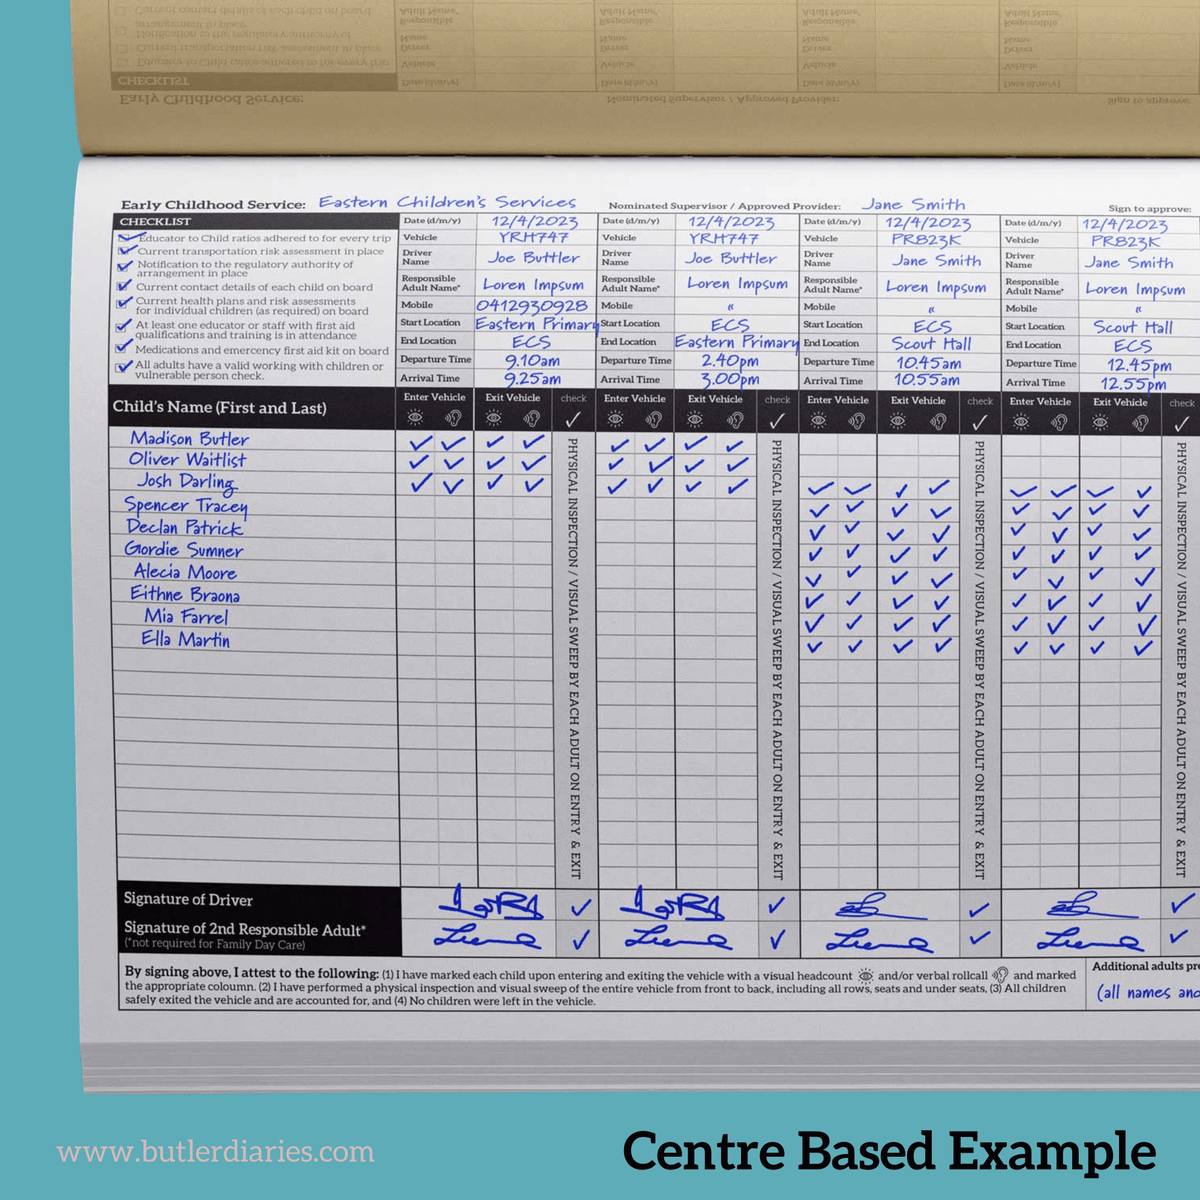 CHECKLIST
Early Childhood Service:
Nominated Supervisor / Approved Provider:
Sign to approve:
Early Childhood Service: Eastern Children's Services Nominated Supervisor / Approved Provider: Jane Smith Sign to approve:
CHECKLIST
Educator to Child ratios adhered to for every trip
Current transportation risk assessment in place
Notification to the regulatory authority of
arrangement in place
Current contact details of each child on board
Current health plans and risk assessments
for individual children (as required) on board
At least one educator or staff with first aid
qualifications and training is in attendance
Medications and emercency first aid kit on board
All adults have a valid working with children or
vulnerable person check.
Date (d/m/y) 12/4/2023 Date (d/m/y) 12/4/2023 Date (d/m/y) 12/4/2023 Date (d/m/y) 12/4/2023
Vehicle YRH747 Vehicle YRH747 Vehicle PR823K Vehicle PR823K
Driver Name Joe Buttler Driver Name Joe Buttler Driver Name Jane Smith Driver Name Jane Smith
Responsible Adult Name* Loren Impsum Responsible Adult Name* Loren Impsum Responsible Adult Name* Loren Impsum Responsible Adult Name* Loren Impsum
Mobile 0412930928 Mobile " Mobile " Mobile "
Start Location Eastern Primary Start Location ECS Start Location ECS Start Location Scout Hall
End Location ECS End Location Eastern Primary End Location Scout Hall End Location ECS
Departure Time 9.10am Departure Time 2.40pm Departure Time 10.45am Departure Time 12.45pm
Arrival Time 9.25am Arrival Time 3.00pm Arrival Time 10.55am Arrival Time 12.55pm
Child's Name (First and Last) Enter Vehicle Exit Vehicle check Enter Vehicle Exit Vehicle check Enter Vehicle Exit Vehicle check Enter Vehicle Exit Vehicle check
Madison Butler
Oliver Waitlist
Josh Darling
Spencer Tracey
Declan Patrick
Gordie Sumner
Alecia Moore
Eithne Braona
Mia Farrel
Ella Martin
PHYSICAL INSPECTION / VISUAL SWEEP BY EACH ADULT ON ENTRY & EXIT
PHYSICAL INSPECTION / VISUAL SWEEP BY EACH ADULT ON ENTRY & EXIT
PHYSICAL INSPECTION / VISUAL SWEEP BY EACH ADULT ON ENTRY & EXIT
PHYSICAL INSPECTION / VISUAL SWEEP BY EACH ADULT ON ENTRY & EXIT
Signature of Driver
Signature of 2nd Responsible Adult*
(*not required for Family Day Care)
By signing above, I attest to the following: (1) I have marked each child upon entering and exiting the vehicle with a visual headcount and/or verbal rollcall and marked
the appropriate coloumn. (2) I have performed a physical inspection and visual sweep of the entire vehicle from front to back, including all rows, seats and under seats, (3) All children
safely exited the vehicle and are accounted for, and (4) No children were left in the vehicle.
Additional adults pre
(all names and
www.butlerdiaries.com
Centre Based Example